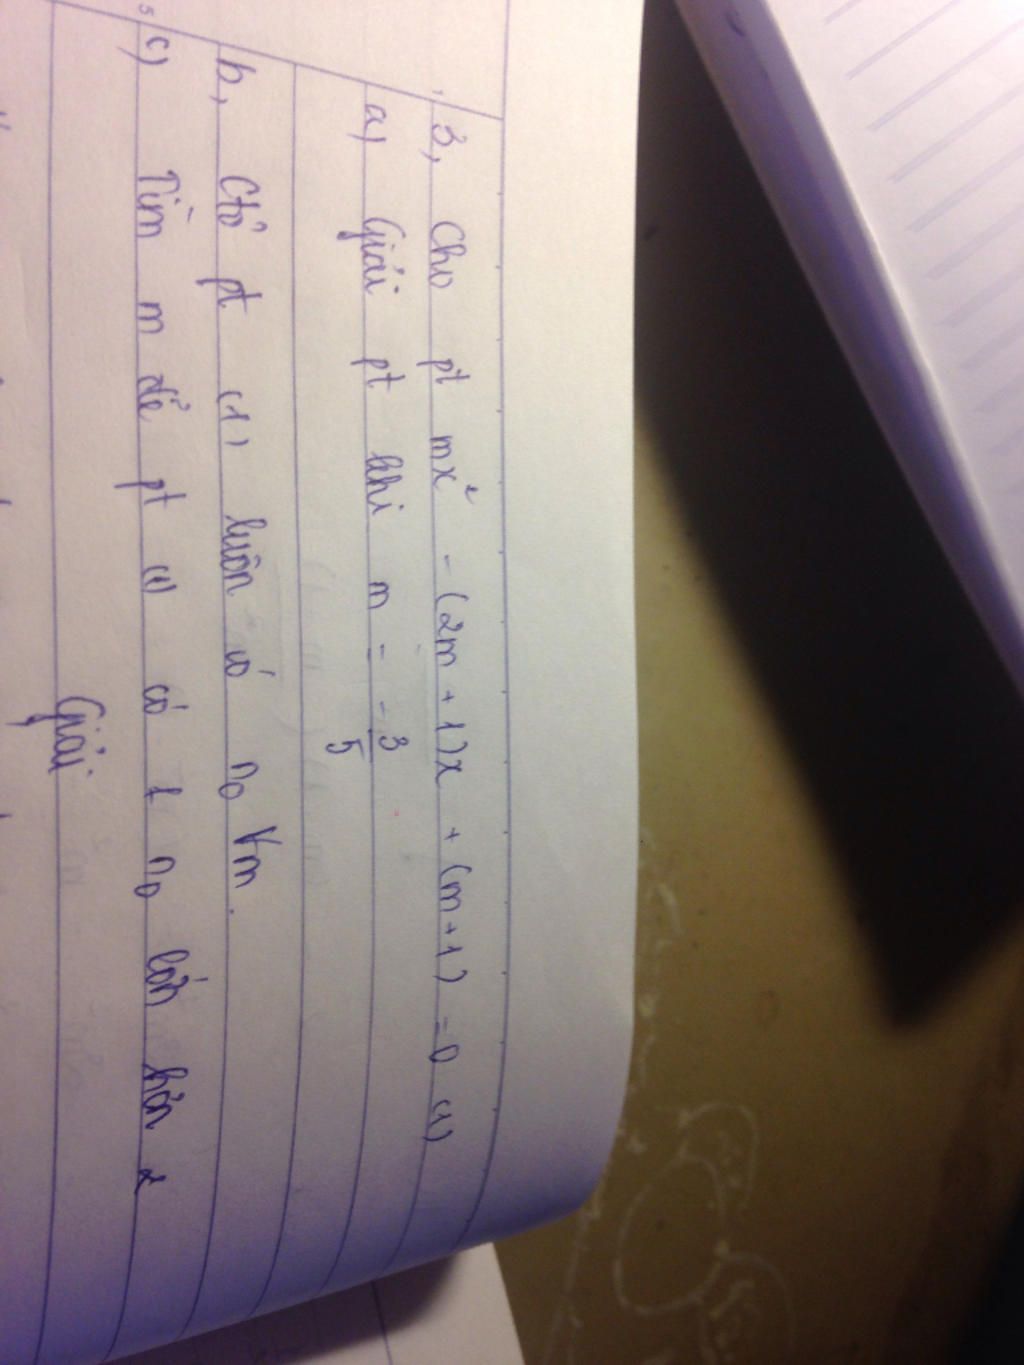 3, Cho pt mx² - (2m + 1)x + (m + 1) = 0 (1)
a) Giải pt khi m = -3/5
b, Ctỏ pt (1) luôn có n₀ ∀m.
c) Tìm m để pt (1) có 1 n₀ lớn hơn 2
Giải